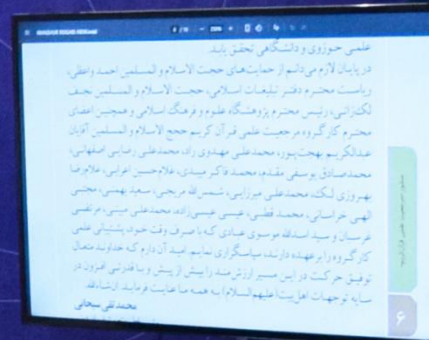 علمی حوزوی و دانشگاهی تحقق یابد.
در پایان لازم می‌دانم از حمایت‌های حجت الاسلام و المسلمین احمد واعظی،
ریاست محترم دفتر تبلیغات اسلامی، حجت الاسلام و المسلمین نجف
لک‌زائی، رئیس محترم پژوهشگاه علوم و فرهنگ اسلامی و همچنین اعضای
محترم کارگروه مرجعیت علمی قرآن کریم حجج الاسلام و المسلمین آقایان
عبدالکریم بهجت‌پور، محمدعلی مهدوی راد، محمدعلی رضایی اصفهانی،
محمدصادق یوسفی مقدم، محمد فاکر میبدی، غلامحسین اعرابی، غلامرضا
بهروزی لک، محمدعلی میرزایی، شمس‌الله مریجی، سعید بهمنی، مجتبی
الهی خراسانی، محمد قطبی، عیسی عیسی‌زاده، محمدعلی مبینی، مرتضی
غرسبان و سید اسدالله موسوی عبادی که با صرف وقت خود، پشتیبانی علمی
کارگروه را بر عهده دارند، سپاسگزاری نمایم. امید آن دارم که خداوند متعال
توفیق حرکت در این مسیر ارزشمند را بیش از پیش و با قدرتی افزون در
سایه توجهات اهل بیت(علیهم‌السلام) به همه ما عنایت فرماید. ان‌شاءالله
محمد تقی سبحانی
۶